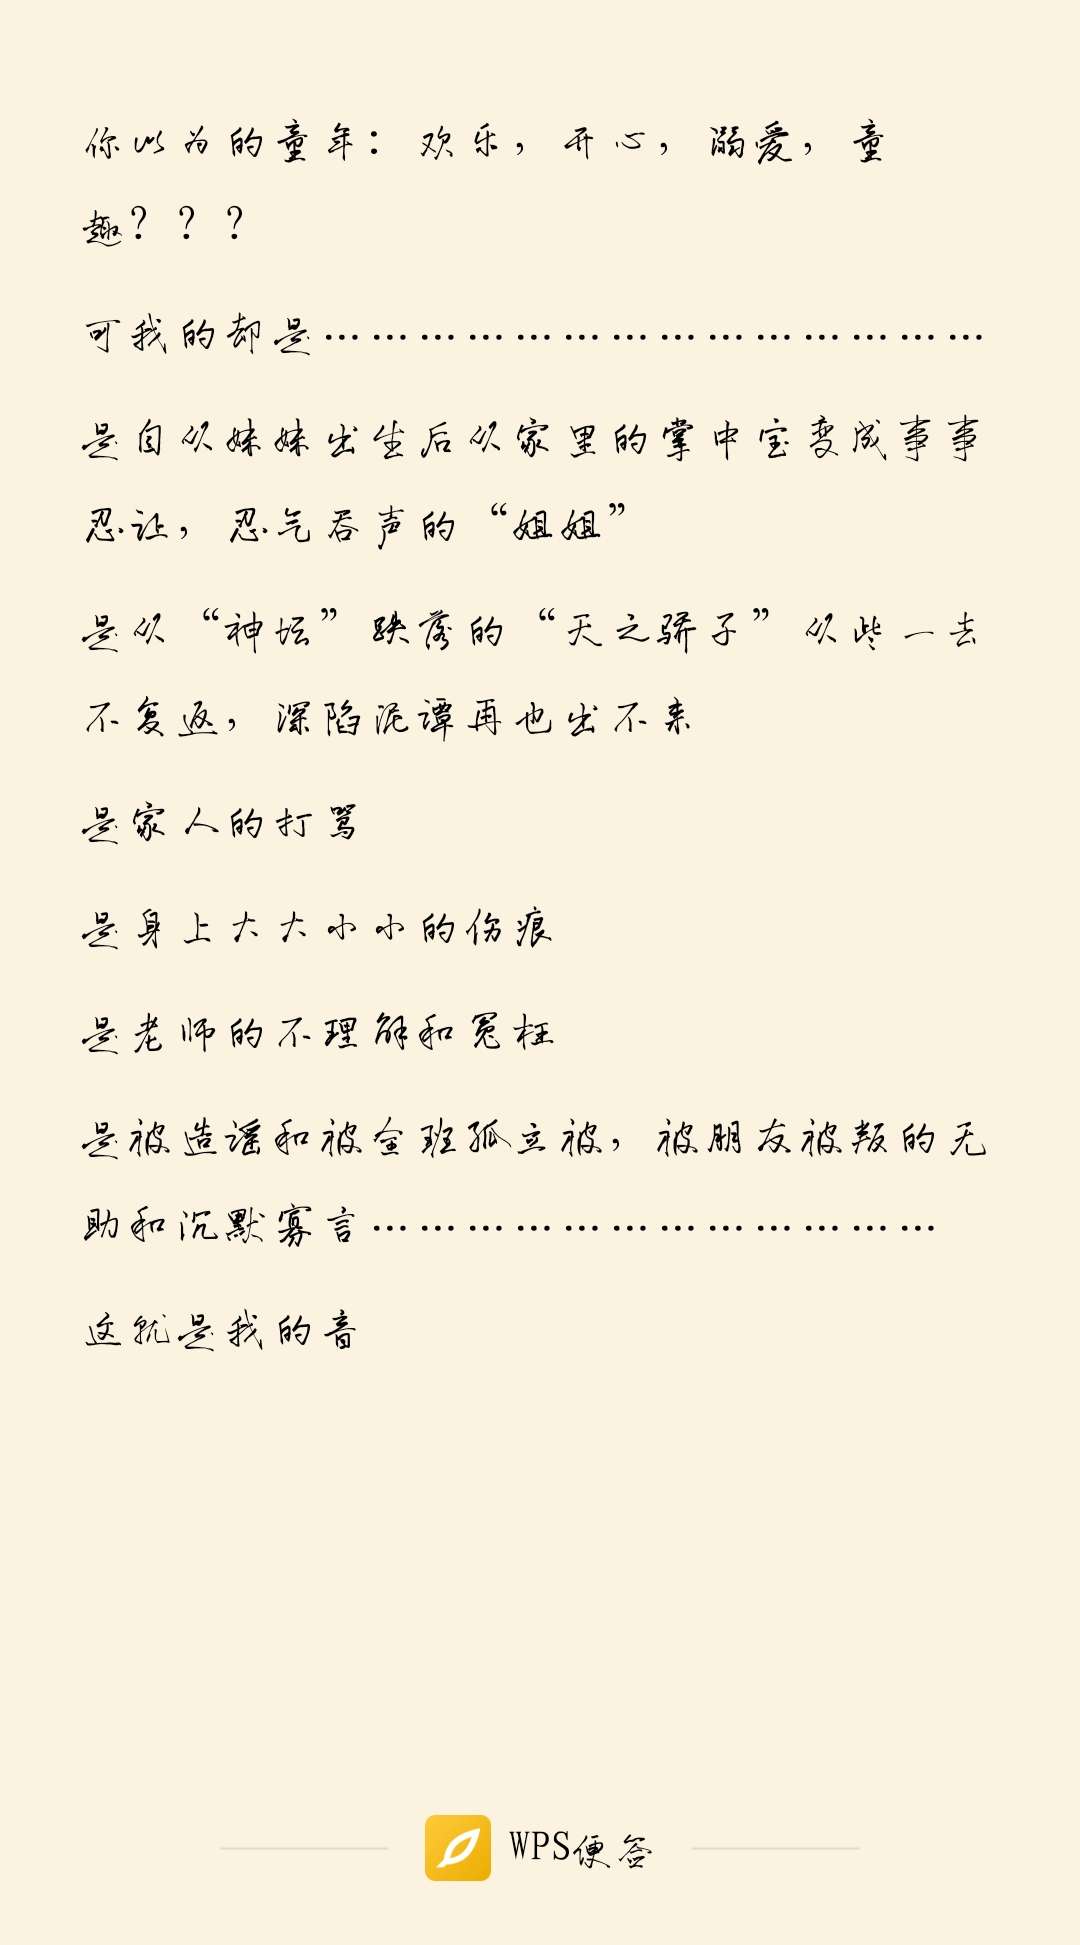 你以为的童年：欢乐，开心，溺爱，童
趣？？？
可我的却是………………………………………
是自从妹妹出生后从家里的掌中宝变成事事
忍让，忍气吞声的“姐姐”
是从“神坛”跌落的“天之骄子”从些一去
不复返，深陷泥谭再也出不来
是家人的打骂
是身上大大小小的伤痕
是老师的不理解和冤枉
是被造谣和被全班孤立被，被朋友被叛的无
助和沉默寡言…………………………………
这就是我的音
WPS便签